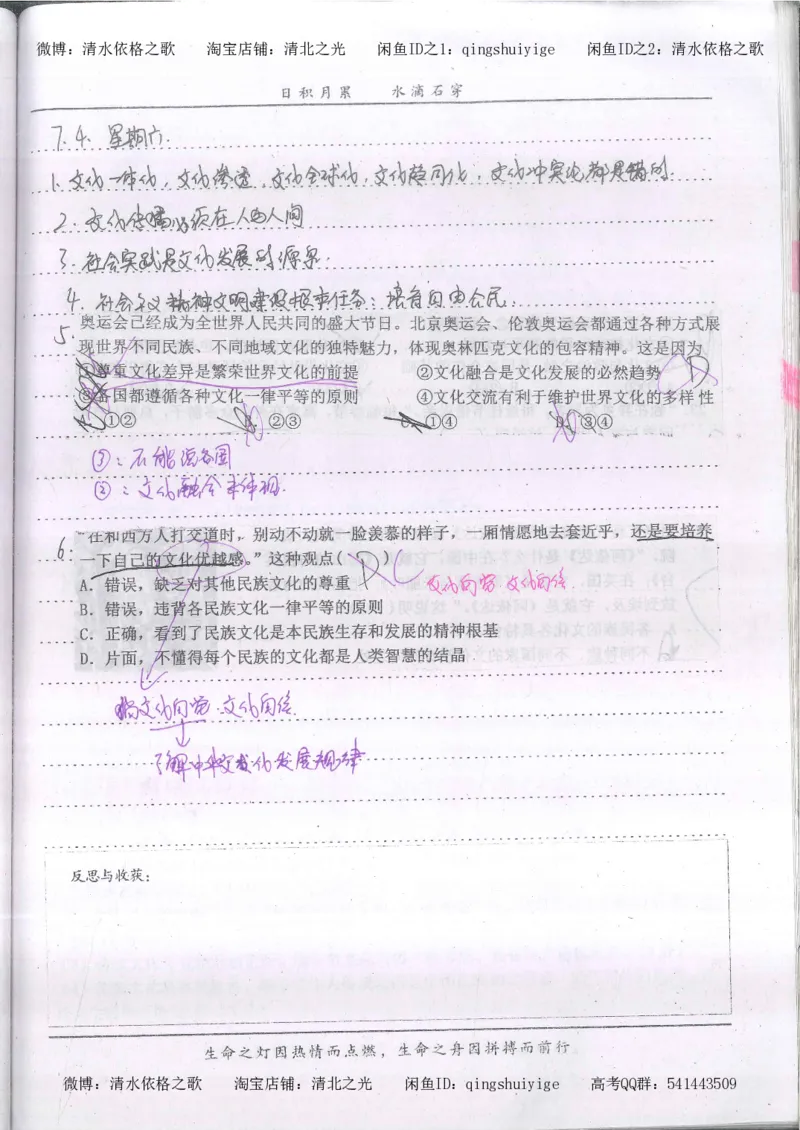 微博：清水依格之歌 淘宝店铺：清北之光 闲鱼ID之1：qingshuiyige 闲鱼ID之2：清水依格之歌
日积月累 水滴石穿
7.4. 星期六
1. 文化一体化，文化渗透，文化全球化，文化趋同化，文化冲突论都是错的.
2. 文化传播必须在人与人间
3. 社会实践是文化发展的源泉.
4. 社会主义精神文明建设根本任务：培育四有公民.
5
奥运会已经成为全世界人民共同的盛大节日。北京奥运会、伦敦奥运会都通过各种方式展
现世界不同民族、不同地域文化的独特魅力，体现奥林匹克文化的包容精神。这是因为
①尊重文化差异是繁荣世界文化的前提 ②文化融合是文化发展的必然趋势 D
③各国都遵循各种文化一律平等的原则 ④文化交流有利于维护世界文化的多样性
A. ①② B. ②③ C. ①④ D. ③④
③：不能说各国
②：文化融合未体现.
6. "在和西方人打交道时，别动不动就一脸羡慕的样子，一厢情愿地去套近乎，还是要培养
下自己的文化优越感。”这种观点（ D ） C 文化自觉 文化自信
A．错误，缺乏对其他民族文化的尊重
B．错误，违背各民族文化一律平等的原则
C．正确，看到了民族文化是本民族生存和发展的精神根基
D．片面，不懂得每个民族的文化都是人类智慧的结晶
文化自觉.文化自信.
了解中华文化发展规律
反思与收获：
生命之灯因热情而点燃，生命之舟因拼搏而前行
微博：清水依格之歌 淘宝店铺：清北之光 闲鱼ID：qingshuiyige 高考QQ群：541443509